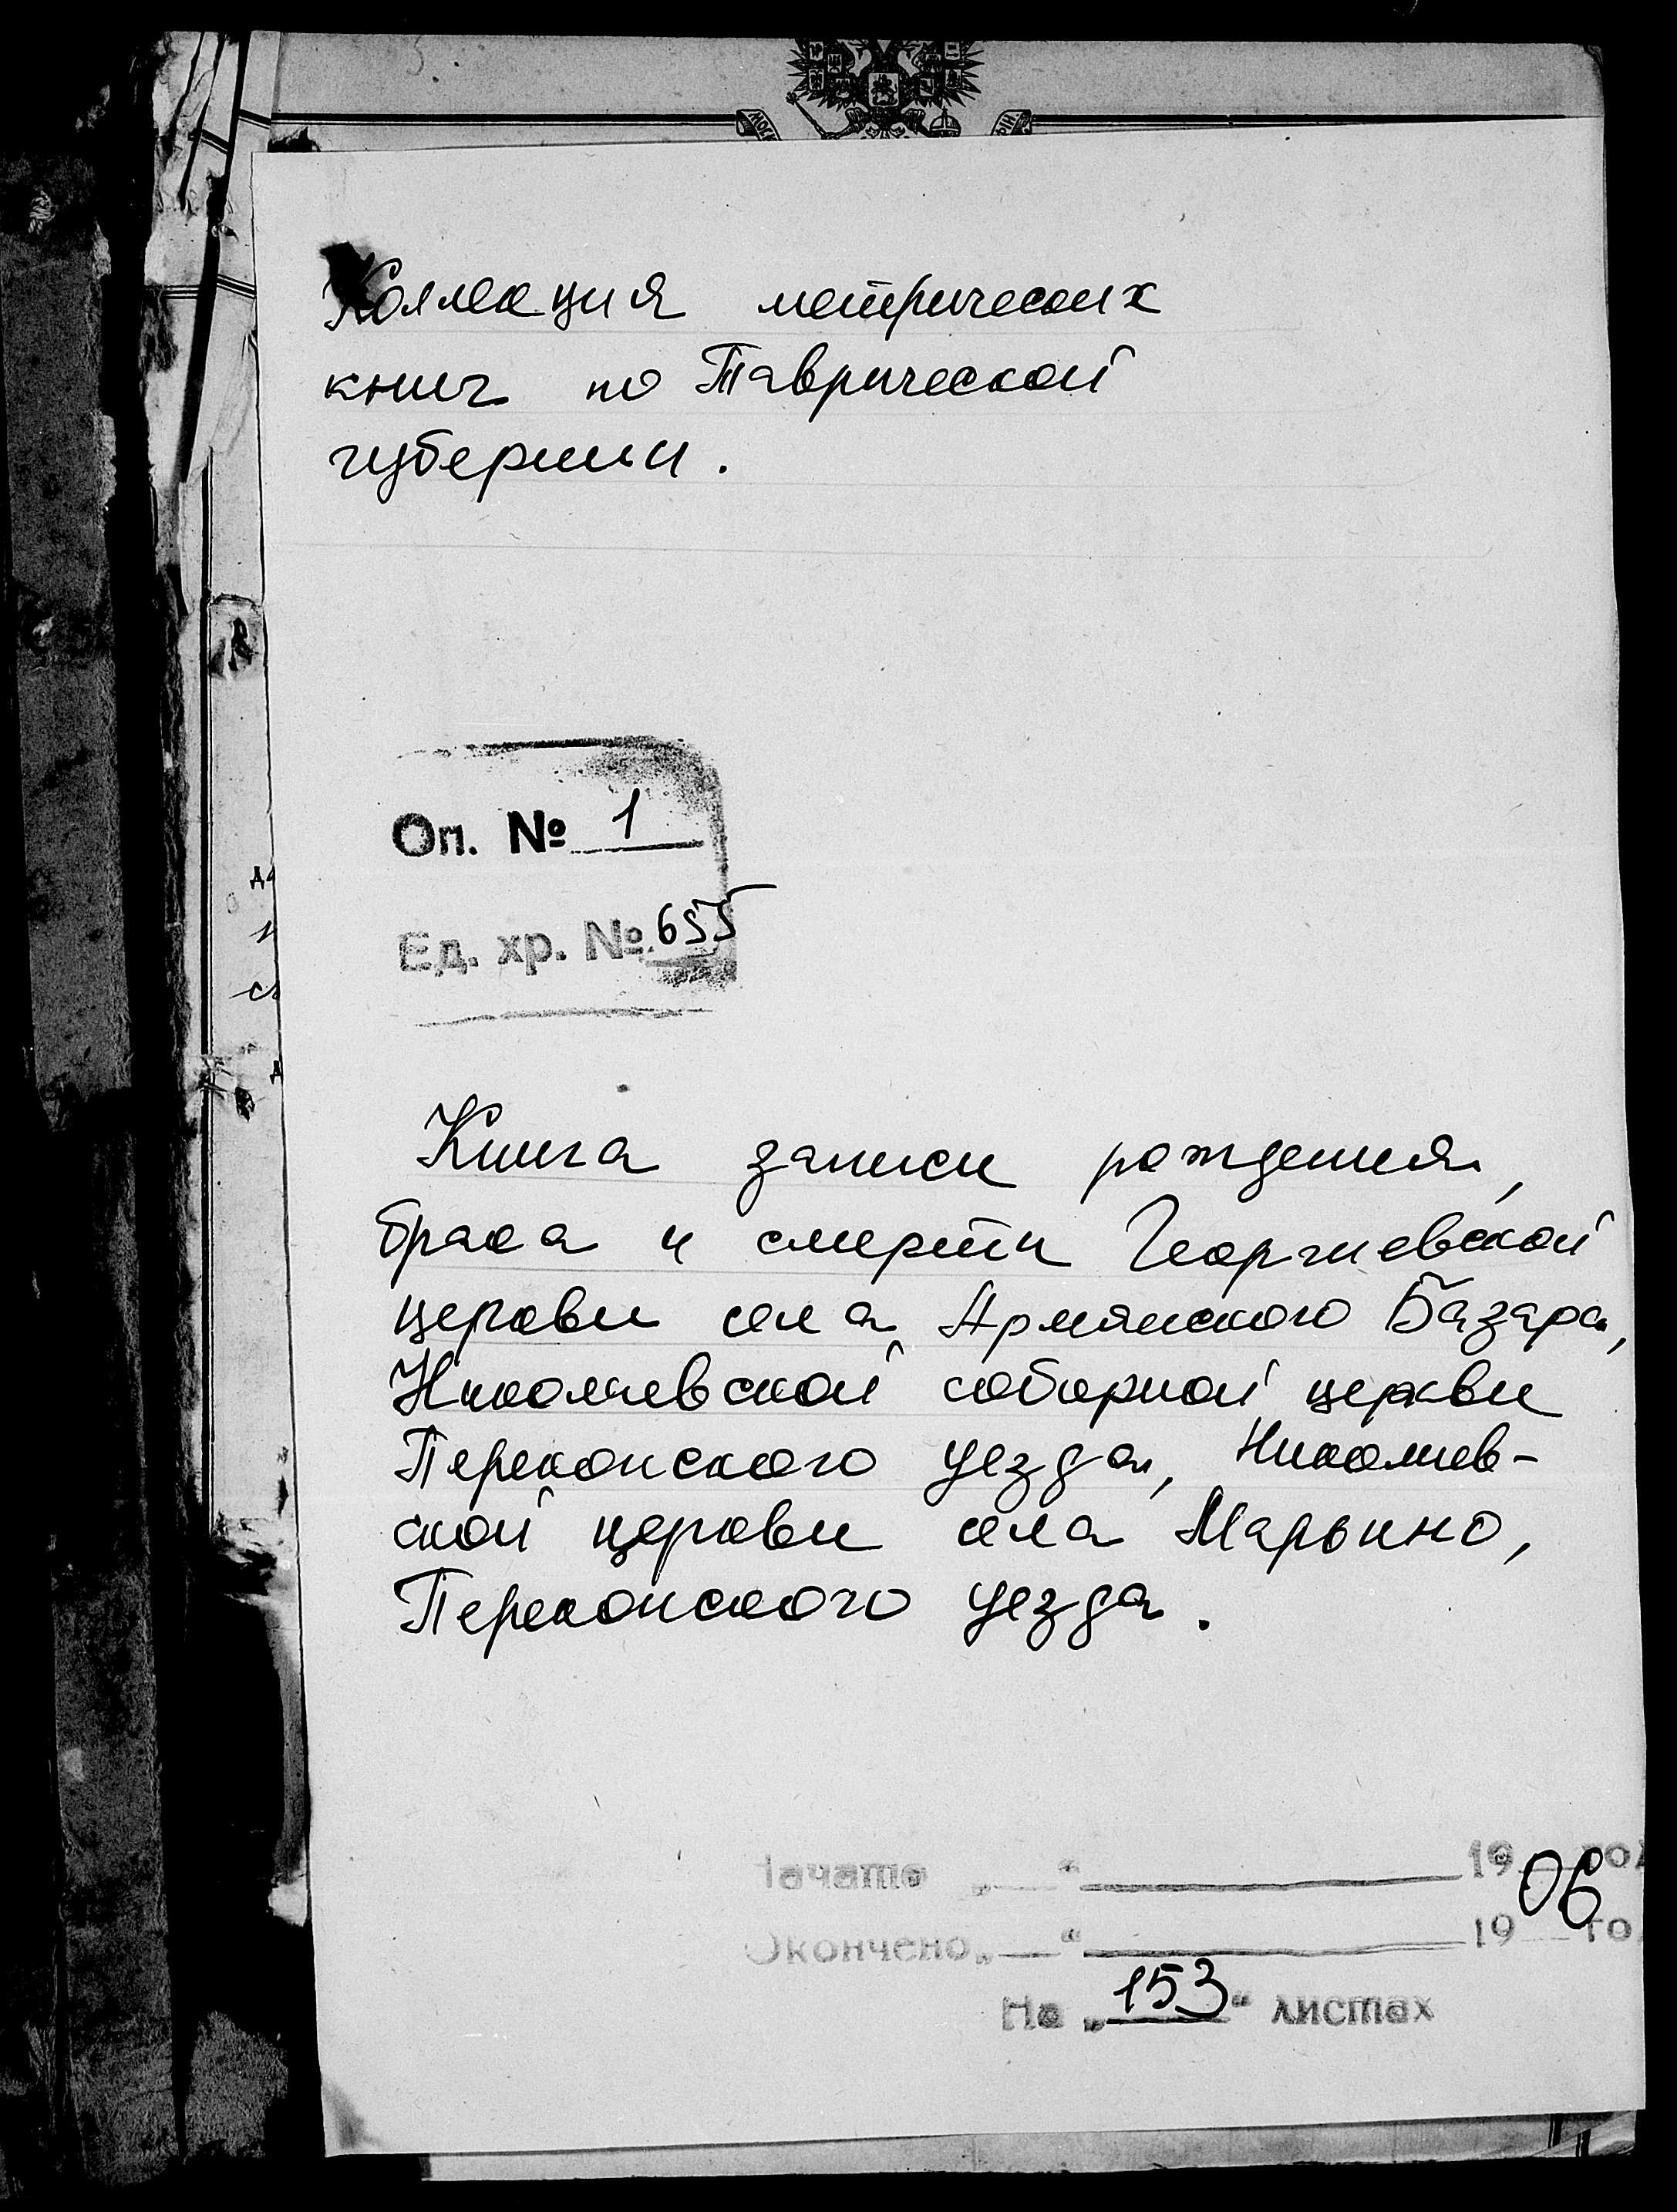 Коллекция метрических
книг по Таврической
губернии.
Оп. № 1
Ед. хр. № 655
Книга записи рождения,
брака и смерти Георгиевской
церкви села Армянского Базара,
Николаевской соборной церкви
Перекопского уезда, Николаев-
ской церкви села Марьино,
Перекопского уезда.
Начато „ “ 19 год
06
Окончено „ “ 19 го
На „153“ листах